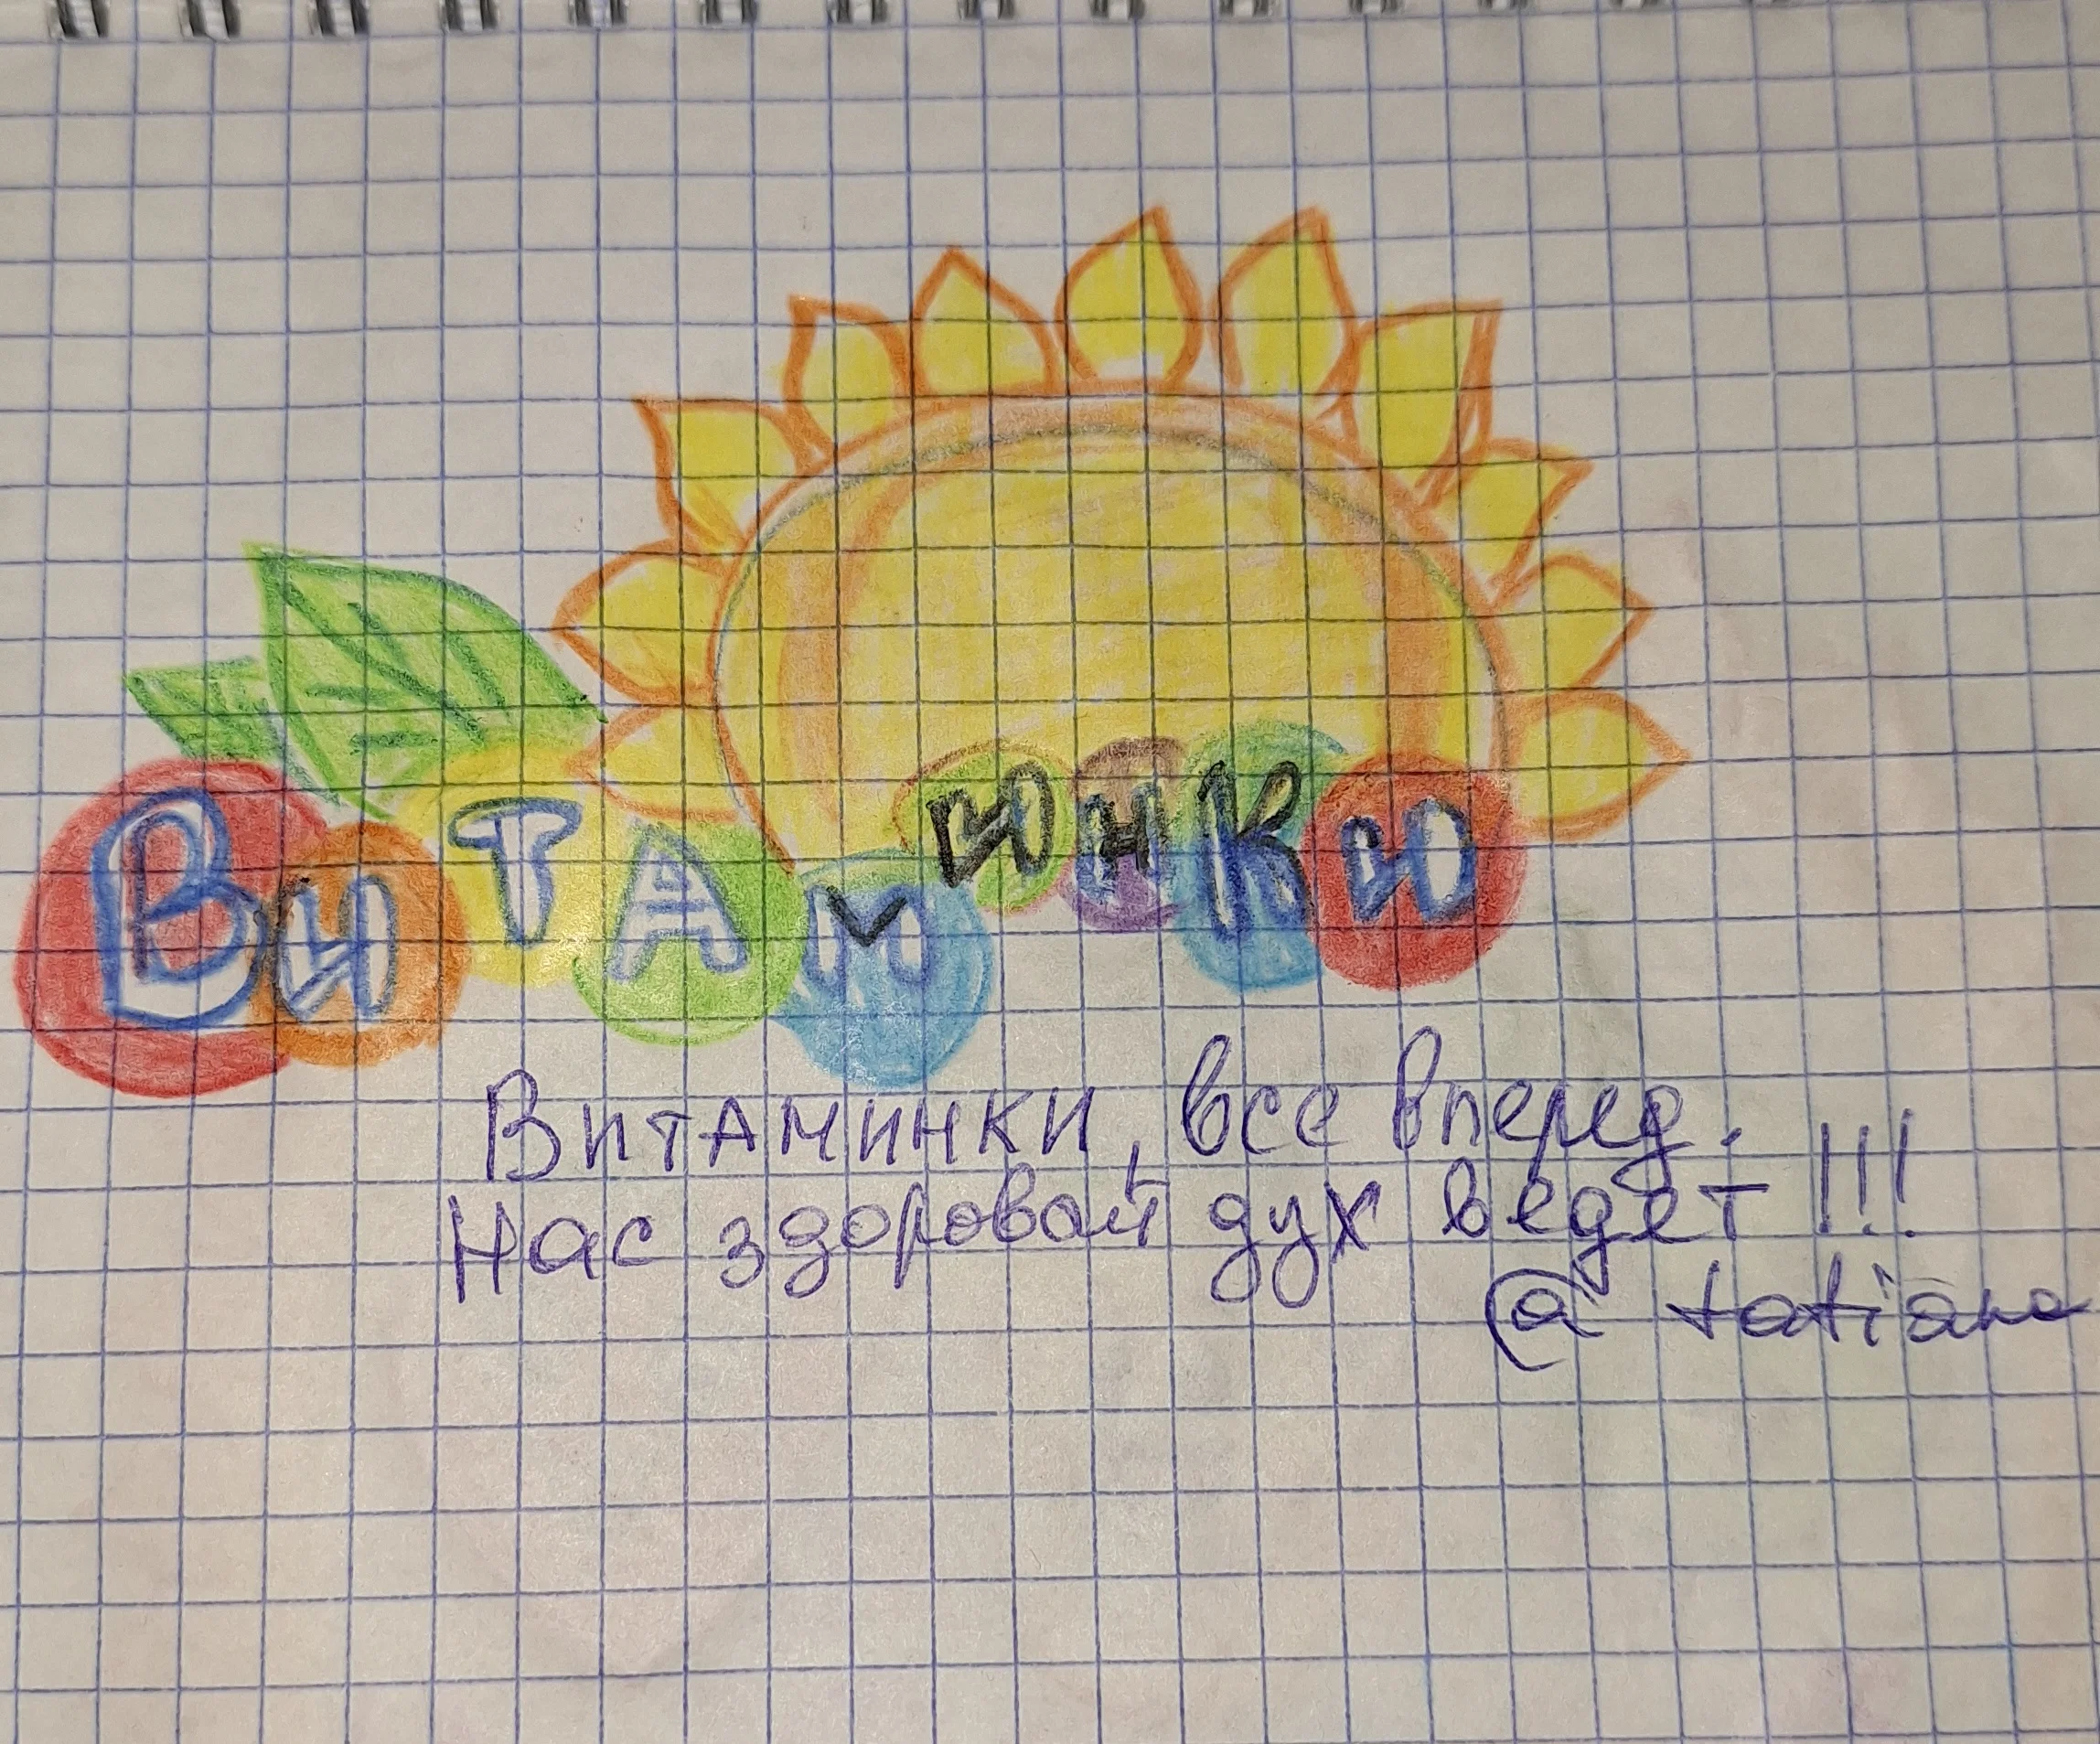 Витаминки
Витаминки, все вперед.
Нас здоровый дух ведет!!!
@ tatiana